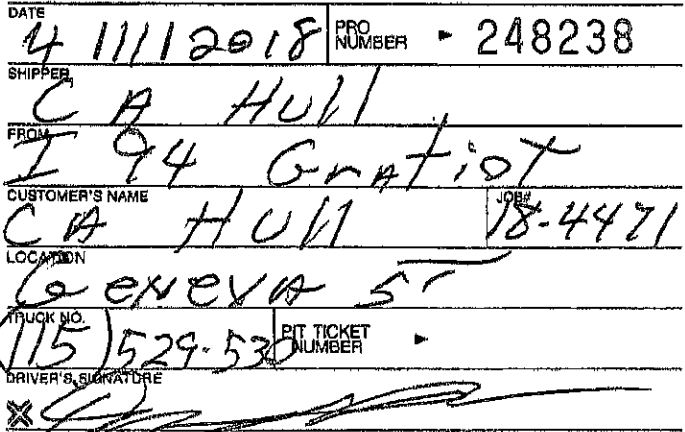 DATE
4 11 2018 PRO NUMBER ► 248238
SHIPPER
C A Hull
FROM
I 94 Gratiot
CUSTOMER'S NAME JOB#
C A Hull 18-4471
LOCATION
Geneva St
TRUCK NO.
115 529-530 PIT TICKET NUMBER ►
DRIVER'S SIGNATURE
X